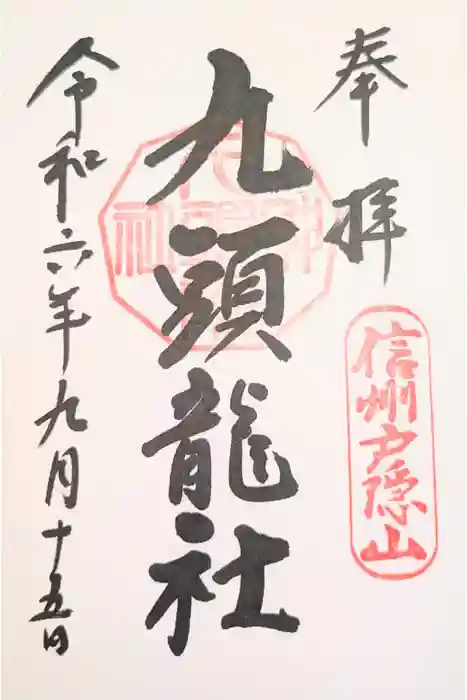 奉拝
信州戸隠山
九頭龍社
令和六年九月十五日